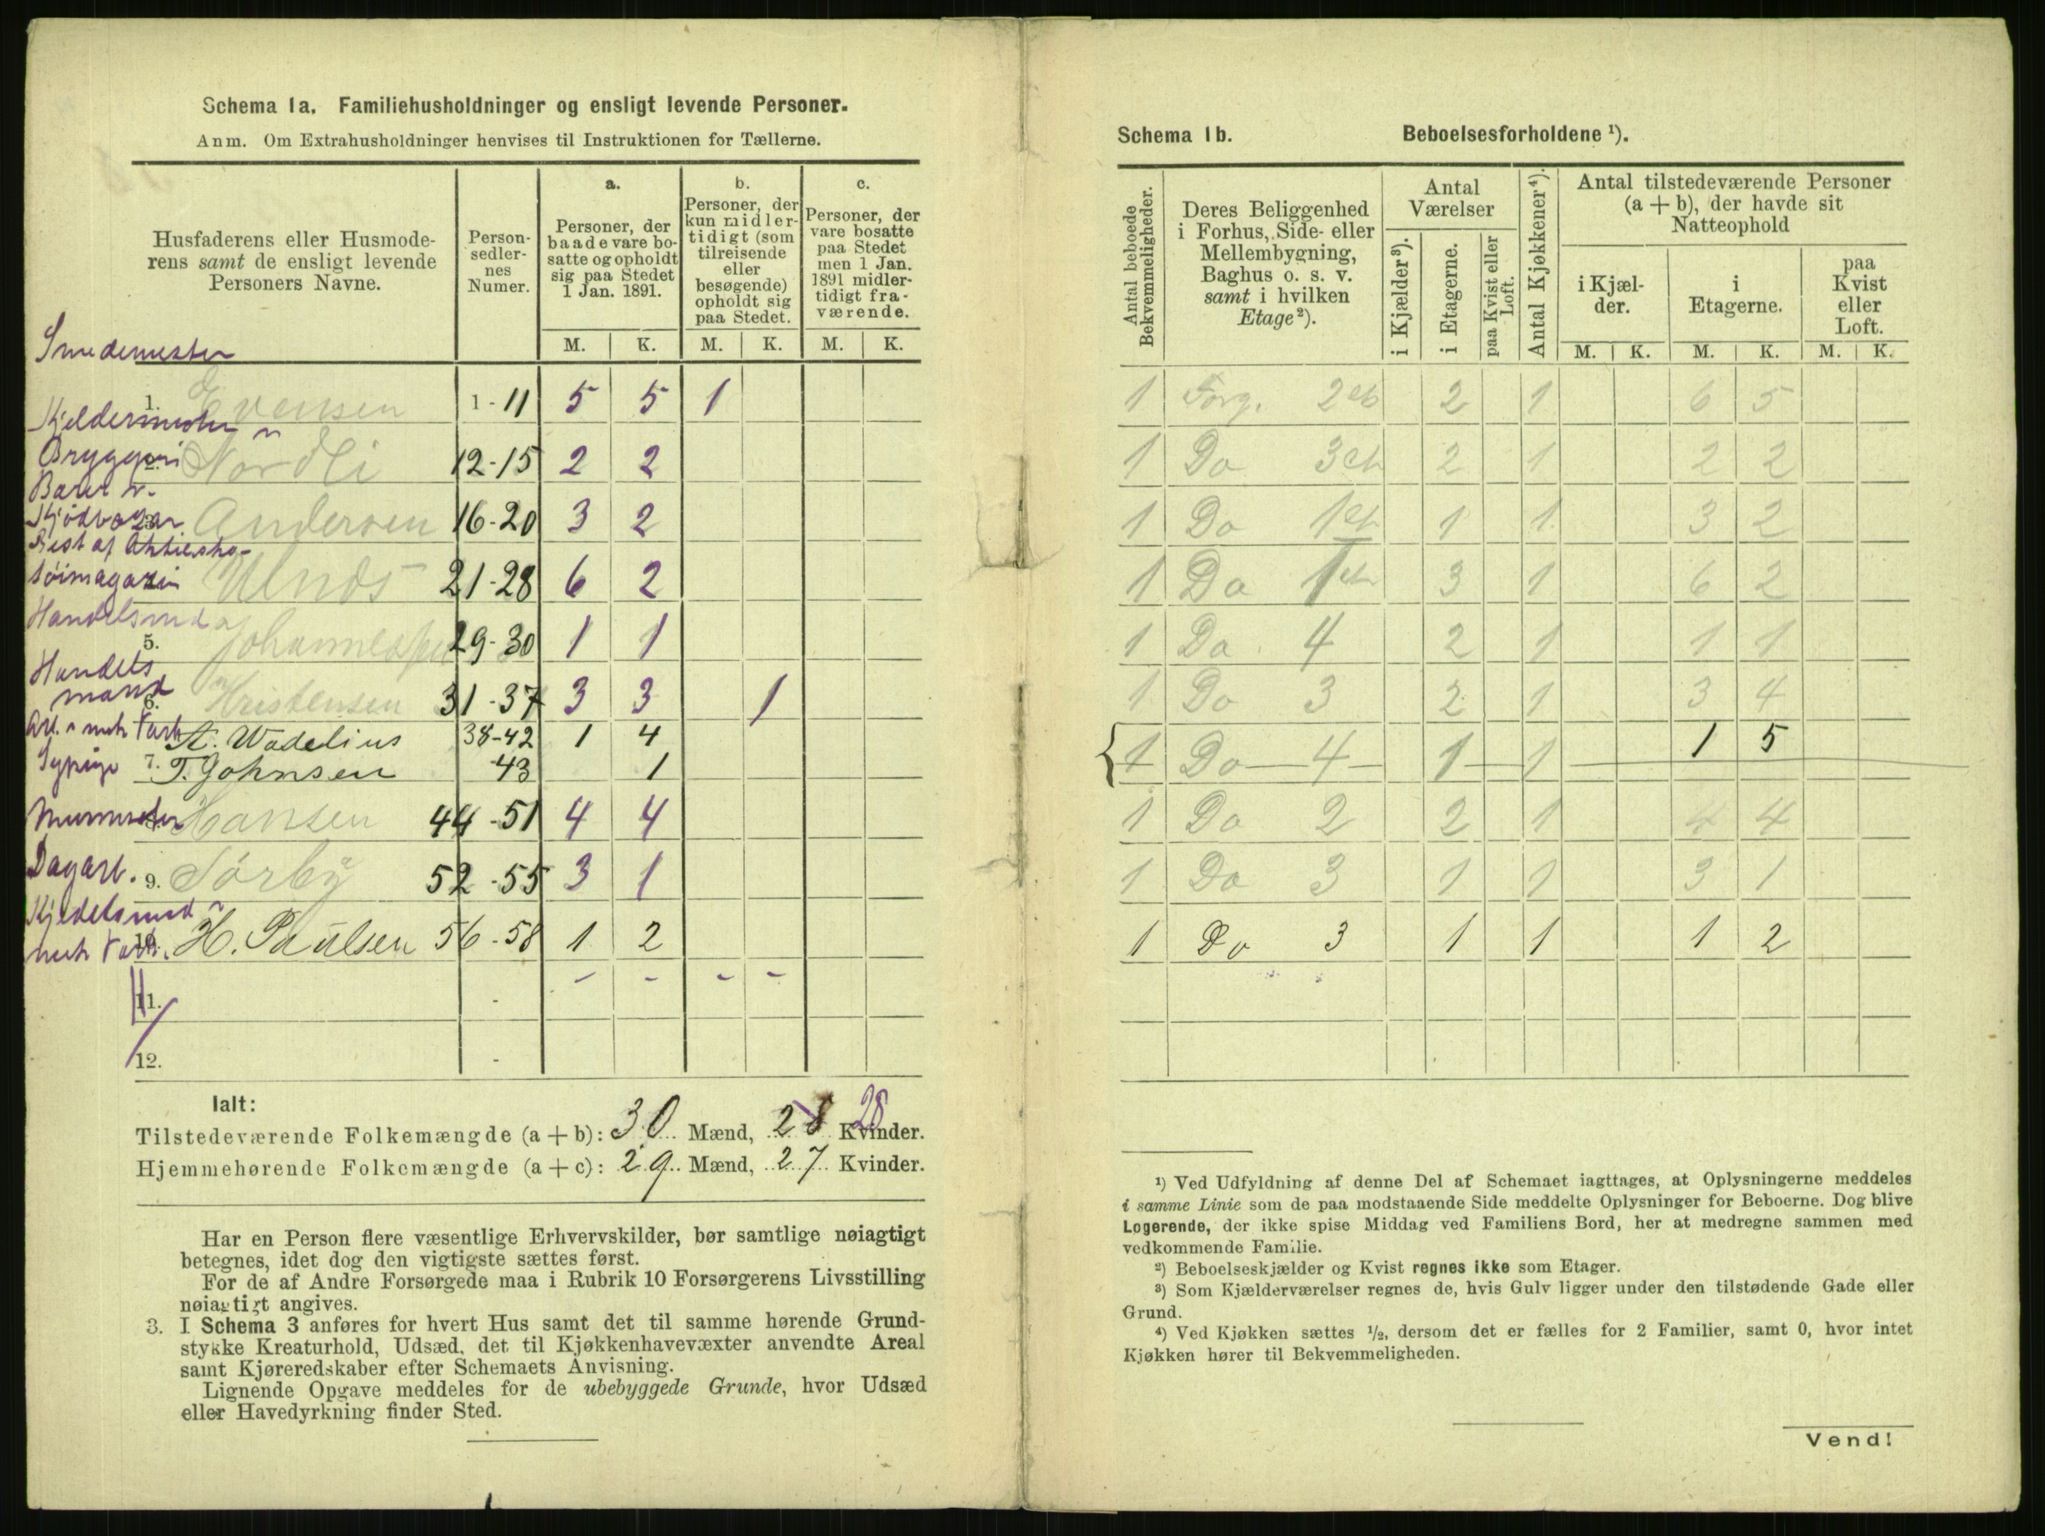 Schema 1a. Familiehusholdninger og ensligt levende Personer.
Anm. Om Extrahusholdninger henvises til Instruktionen for Tællerne.
Husfaderens eller Husmoderens samt de ensligt levende Personers Navne.
Person-sedlernes Numer.
a. Personer, der baade vare bosatte og opholdt sig paa Stedet 1 Jan. 1891.
b. Personer, der kun midlertidigt (som tilreisende eller besøgende) opholdt sig paa Stedet.
c. Personer, der vare bosatte paa Stedet men 1 Jan. 1891 midlertidigt fraværende.
M. K. M. K. M. K.
Smedemester
1. Evensen 1-11 5 5 1
Kjeldermester
Bryggeri
2. Nordli 12-15 2 2
3. Andersen 16-20 3 2
Best af Aktiesko-
tøimagazin
4. 21-28 6 2
5. 29-30 1 1
Handels
mand
6. Kristensen 31-37 3 3 1
A. Wadelius 38-42 1 4
Sypige 7. T. Johnsen 43 1
8. Hansen 44-51 4 4
Dagarb. 9. Sørby 52-55 3 1
10. H. Paulsen 56-58 1 2
11. - - - - -
12. -
Ialt:
Tilstedeværende Folkemængde (a + b): 30 Mænd, 28 28 Kvinder.
Hjemmehørende Folkemængde (a + c): 29 Mænd, 27 Kvinder.
Har en Person flere væsentlige Erhvervskilder, bør samtlige nøiagtigt
betegnes, idet dog den vigtigste sættes først.
For de af Andre Forsørgede maa i Rubrik 10 Forsørgerens Livsstilling
nøiagtigt angives.
3. I Schema 3 anføres for hvert Hus samt det til samme hørende Grund-
stykke Kreaturhold, Udsæd, det til Kjøkkenhavevæxter anvendte Areal
samt Kjøreredskaber efter Schemaets Anvisning.
Lignende Opgave meddeles for de ubebyggede Grunde, hvor Udsæd
eller Havedyrkning finder Sted.
Schema 1b. Beboelsesforholdene ¹).
Antal beboede Bekvemmeligheder.
Deres Beliggenhed i Forhus, Side- eller Mellembygning, Baghus o. s. v. samt i hvilken Etage²).
Antal Værelser
i Kjælder³).
i Etagerne.
paa Kvist eller Loft.
Antal Kjøkkener⁴).
Antal tilstedeværende Personer (a + b), der havde sit Natteophold
i Kjælder.
i Etagerne.
paa Kvist eller Loft.
M. K. M. K. M. K.
1 Forg. 2et 2 1 6 5
1 Do 3et 2 1 2 2
1 Do 1et 1 1 3 2
1 Do 1et 3 1 6 2
1 Do 4 2 1 1 1
1 Do 3 2 1 3 4
1 Do 4 1 1 1 5
1 Do 2 2 1 4 4
1 Do 3 1 1 3 1
1 Do 3 1 1 1 2
¹) Ved Udfyldning af denne Del af Schemaet iagttages, at Oplysningerne meddeles
i samme Linie som de paa modstaaende Side meddelte Oplysninger for Beboerne. Dog blive
Logerende, der ikke spise Middag ved Familiens Bord, her at medregne sammen med
vedkommende Familie.
²) Beboelseskjælder og Kvist regnes ikke som Etager.
³) Som Kjælderværelser regnes de, hvis Gulv ligger under den tilstødende Gade eller
Grund.
⁴) Ved Kjøkken sættes ½, dersom det er fælles for 2 Familier, samt 0, hvor intet
Kjøkken hører til Bekvemmeligheden.
Vend!